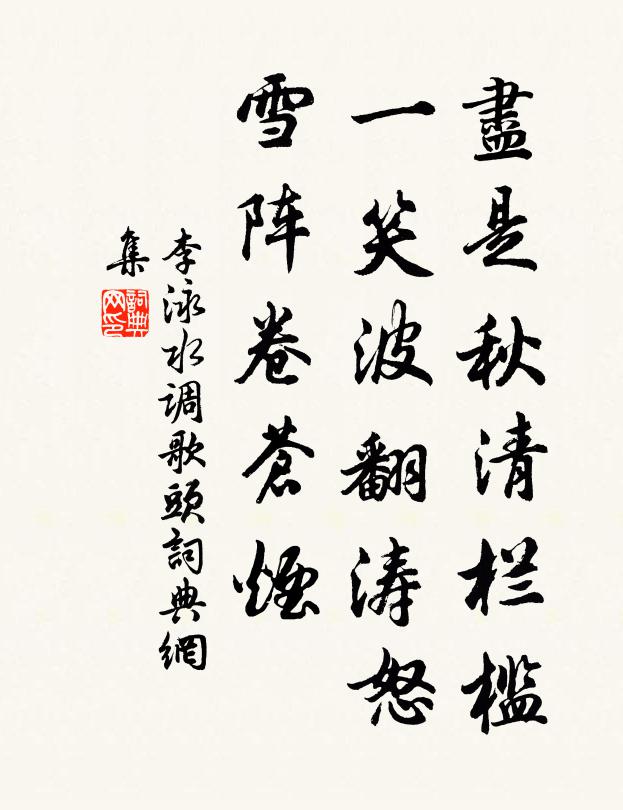 盡是秋清栏槛
一笑波翻涛怒
雪阵卷苍煙
李泳水调歌頭詞典網
集
詞典
网印